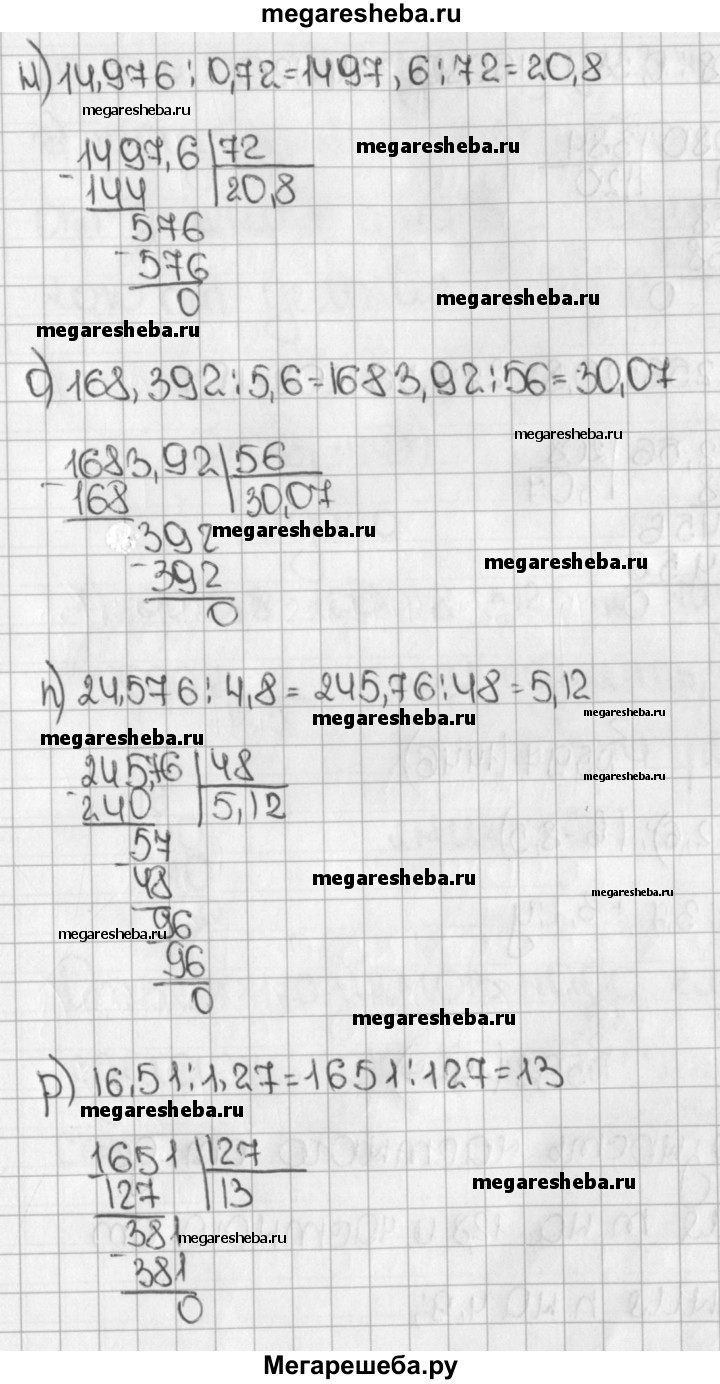 megaresheba.ru
н) 14,976 : 0,72 = 1497,6 : 72 = 20,8
megaresheba.ru
megaresheba.ru
1497,6 | 72
- 144 | 20,8
576
- 576
0
megaresheba.ru
megaresheba.ru
о) 168,392 : 5,6 = 1683,92 : 56 = 30,07
megaresheba.ru
1683,92 | 56
- 168 | 30,07
392
megaresheba.ru
- 392
megaresheba.ru
0
п) 24,576 : 4,8 = 245,76 : 48 = 5,12
megaresheba.ru
megaresheba.ru
megaresheba.ru
245,76 | 48
megaresheba.ru
- 240 | 5,12
- 57
48
megaresheba.ru
megaresheba.ru
- 96
megaresheba.ru
96
0
megaresheba.ru
р) 16,51 : 1,27 = 1651 : 127 = 13
megaresheba.ru
1651 | 127
- 127 | 13
megaresheba.ru
381
megaresheba.ru
- 381
0
Мегарешеба.ру